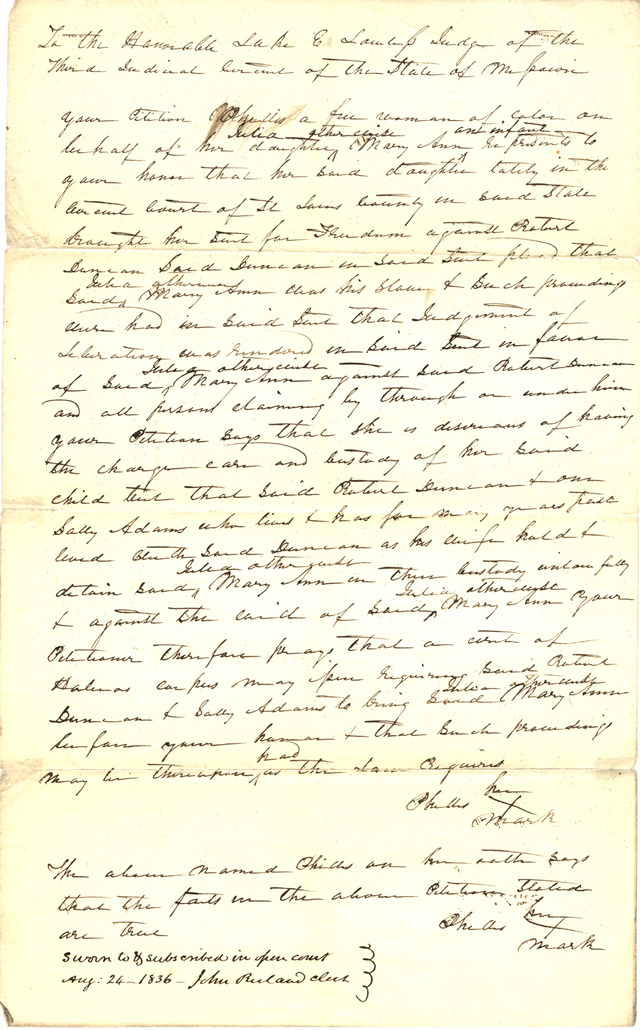 To the Honorable Luke E Lawless Judge of the
Third Judicial Circuit of the State of Missouri
your Petition Phillis a free woman of color on
behalf of her daughter, Julia otherwise Mary Ann an infant represents to
your honor that her said daughter lately in the
circuit court of St Louis County in said State
brought her suit for Freedom against Robert
Duncan said Duncan in said suit plead that
said, Julia otherwise Mary Ann was his slave & such proceedings
were had in said suit that Judgment of
Liberation was rendered in said suit in favor
of said, Julia otherwise Mary Ann against said Robert Duncan
and all persons claiming by through or under him
your Petition says that she is desirous of having
the charge care and custody of her said
child but that said Robert Duncan & one
Sally Adams who lives & has for many years past
lived with said Duncan as his wife hold &
detain said, Julia otherwise Mary Ann in their custody unlawfully
& against the will of said, Julia otherwise Mary Ann your
Petitioner therefore prays that a writ of
Habeas corpus may issue requiring said Robert
Duncan & Sally Adams to bring said Julia otherwise Mary Ann
before your honor & that such proceedings
may be thereupon had as the Law requires
Phillis her
X
mark
The above named Phillis on her oath says
that the facts in the above Petition stated
are true
Phillis her
X
mark
Sworn to & subscribed in open court
Aug: 24 - 1836 - John Ruland clerk